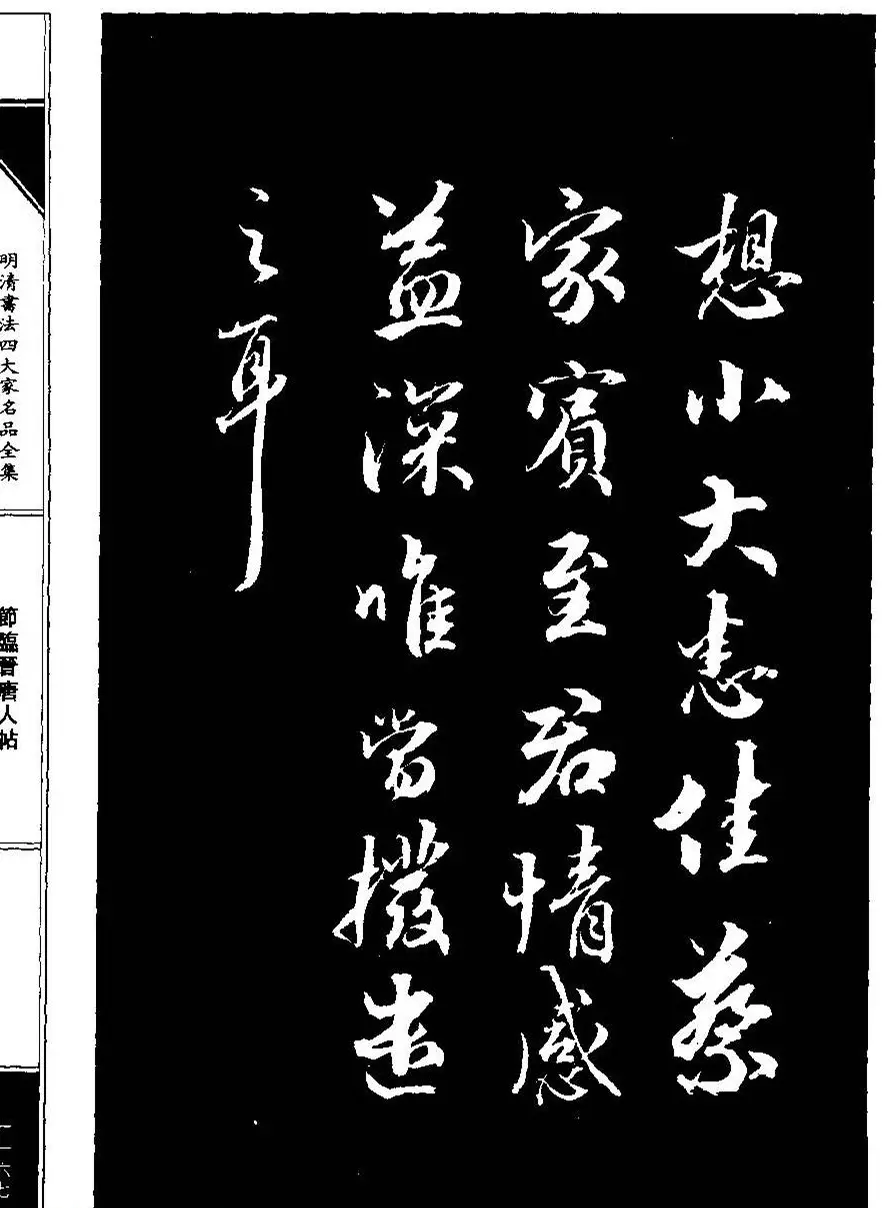 想小大悉佳蔡
家賓至君情感
益深唯當撥遣
之耳
明清書法四大家名品全集
節臨晉唐人帖
一一六七